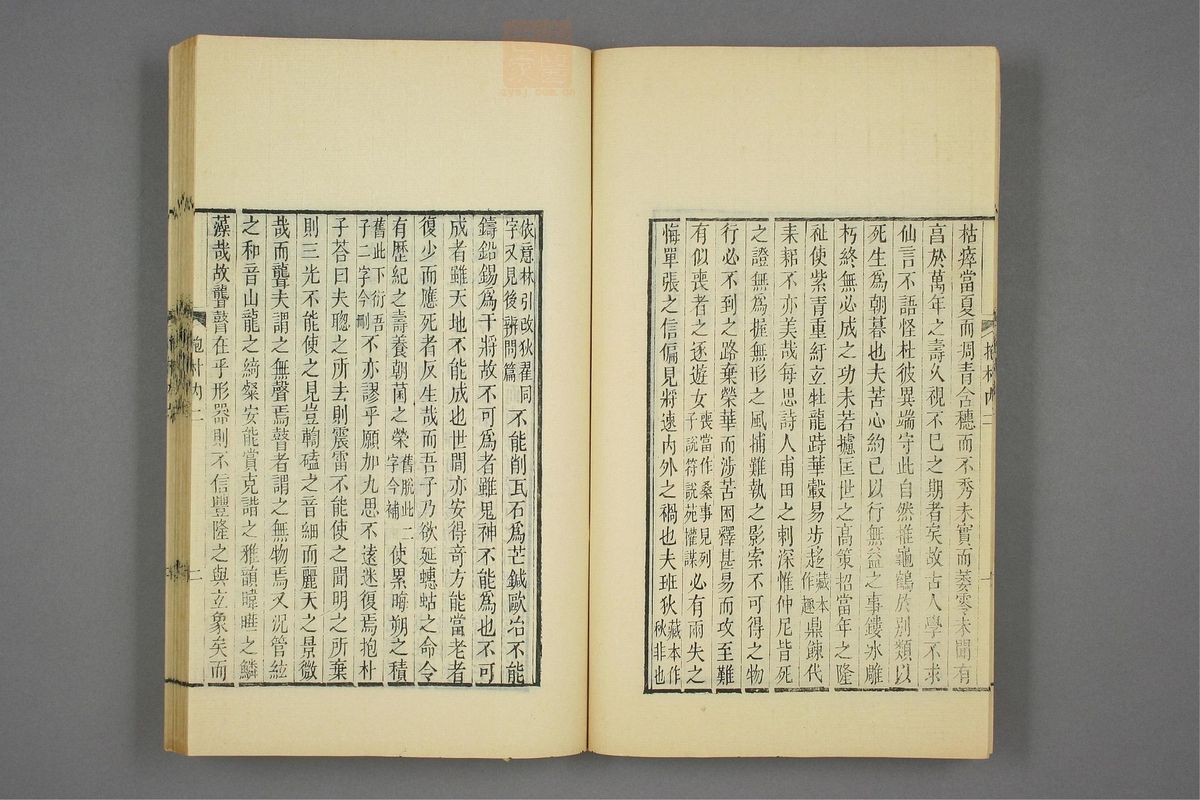 枯瘁當夏而凋青含穗而不秀未實而萎零未聞有
享於萬年之壽久視不已之期者矣故古人學不求
仙言不語怪杜彼異端守此自然推龜鶴於別類以
死生爲朝暮也夫苦心約己以行無益之事鏤冰雕
朽終無必成之功未若攄匡世之高策招當年之隆
祉使紫青重紆玄牡龍跱華轂易步趍藏本作趣鼎餗代
耒耜不亦美哉每思詩人甫田之刺深惟仲尼皆死
之證無爲握無形之風捕難執之影索不可得之物
行必不到之路棄榮華而涉苦困釋甚易而攻至難
有似喪者之逐遊女喪當作桑事見列子說符說苑權謀必有兩失之
悔單張之信偏見將速內外之禍也夫班狄藏本作秋非也
抱朴內二
依意林引改狄翟同字又見後辨問篇不能削瓦石爲芒鍼歐冶不能
鑄鉛錫爲干將故不可爲者雖鬼神不能爲也不可
成者雖天地不能成也世間亦安得奇方能當老者
復少而應死者反生哉而吾子乃欲延蟪蛄之命令
有歷紀之壽養朝菌之榮舊脫此二字今補使累晦朔之積
舊此下衍吾子二字今刪不亦謬乎願加九思不遠迷復焉抱朴
子荅曰夫聰之所去則震雷不能使之聞明之所棄
則三光不能使之見豈輷磕之音細而麗天之景微
哉而聾夫謂之無聲焉瞽者謂之無物焉又況管絃
之和音山龍之綺粲安能賞克諧之雅韻暐曄之鱗
藻哉故聾瞽在乎形器則不信豐隆之與玄象矣而
抱朴內二
二